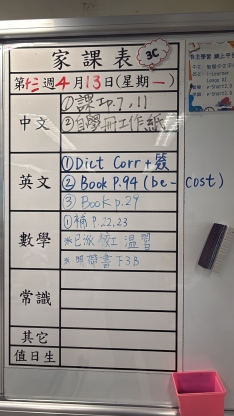 家課表
3C
第十三週4月13日(星期一)
中文
①課功.7.11
②自學冊工作紙
英文
①Dict Corr+簽
②Book P.94 (be-cost)
③Book p.29
數學
①補 P.22,23
※已派 校工 溫習
※ 帶書下3B
常識
其它
值日生